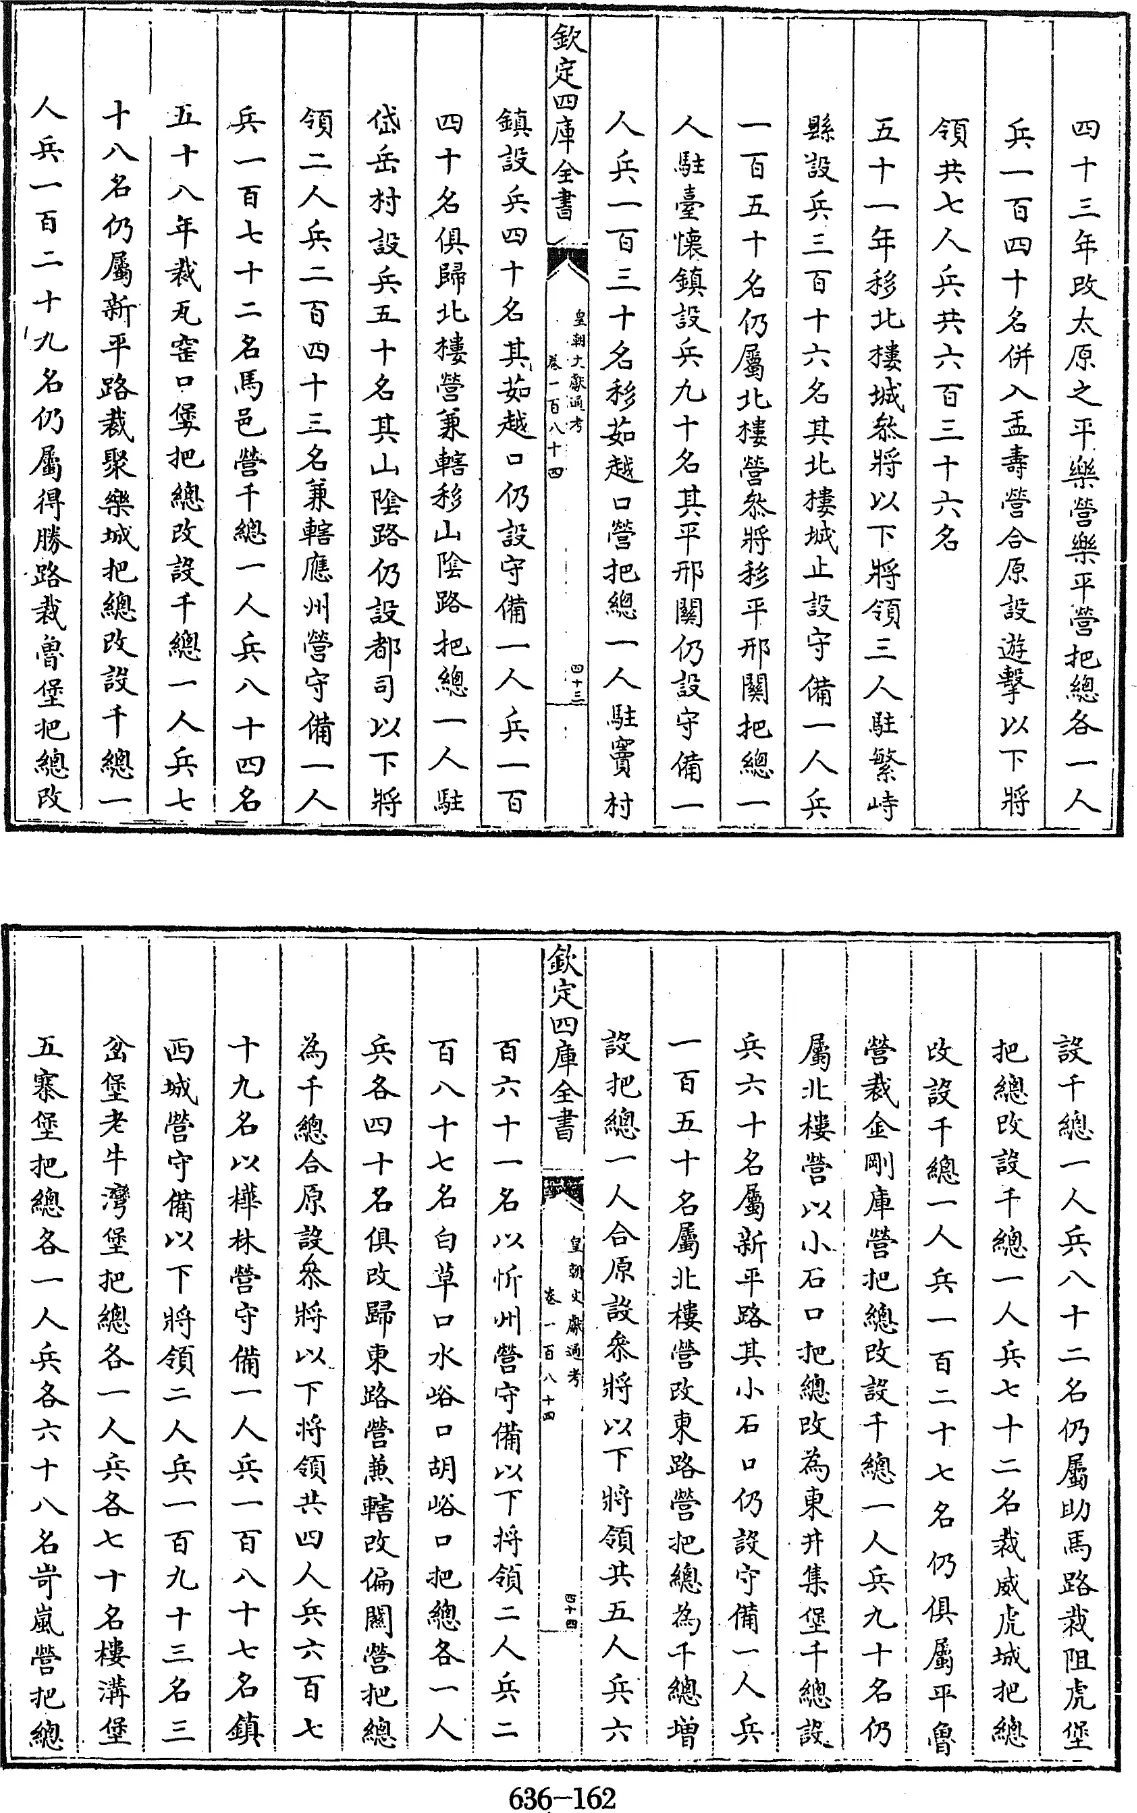 四十三年改太原之平樂營樂平營把總各一人
兵一百四十名併入盂壽營合原設遊擊以下將
領共七人兵共六百三十六名
五十一年移北樓城叅將以下將領三人駐繁峙
縣設兵三百十六名其北樓城止設守備一人兵
一百五十名仍屬北樓營叅將移平邢關把總一
人駐臺懷鎮設兵九十名其平邢關仍設守備一
人兵一百三十名移茹越口營把總一人駐竇村
欽定四庫全書
皇朝文獻通考
卷一百八十四
四十三
鎮設兵四十名其茹越口仍設守備一人兵一百
四十名俱歸北樓營兼轄移山陰路把總一人駐
岱岳村設兵五十名其山陰路仍設都司以下將
領二人兵二百四十三名兼轄應州營守備一人
兵一百七十二名馬邑營千總一人兵八十四名
五十八年裁瓦窑口堡把總改設千總一人兵七
十八名仍屬新平路裁聚樂城把總改設千總一
人兵一百二十九名仍屬得勝路裁魯堡把總改
設千總一人兵八十二名仍屬助馬路裁阻虎堡
把總改設千總一人兵七十二名裁威虎城把總
改設千總一人兵一百二十七名仍俱屬平魯
營裁金剛庫營把總改設千總一人兵九十名仍
屬北樓營以小石口把總改為東井集堡千總設
兵六十名屬新平路其小石口仍設守備一人兵
一百五十名屬北樓營改東路營把總為千總增
設把總一人合原設叅將以下將領共五人兵六
欽定四庫全書
皇朝文獻通考
卷一百八十四
四十四
百六十一名以忻州營守備以下將領二人兵二
百八十七名白草口水峪口胡峪口把總各一人
兵各四十名俱改歸東路營兼轄改偏關營把總
為千總合原設叅將以下將領共四人兵六百七
十九名以樺林營守備一人兵一百八十七名鎮
西城營守備以下將領二人兵一百九十三名三
岔堡老牛灣堡把總各一人兵各七十名樓溝堡
五寨堡把總各一人兵各六十八名岢嵐營把總
636-162